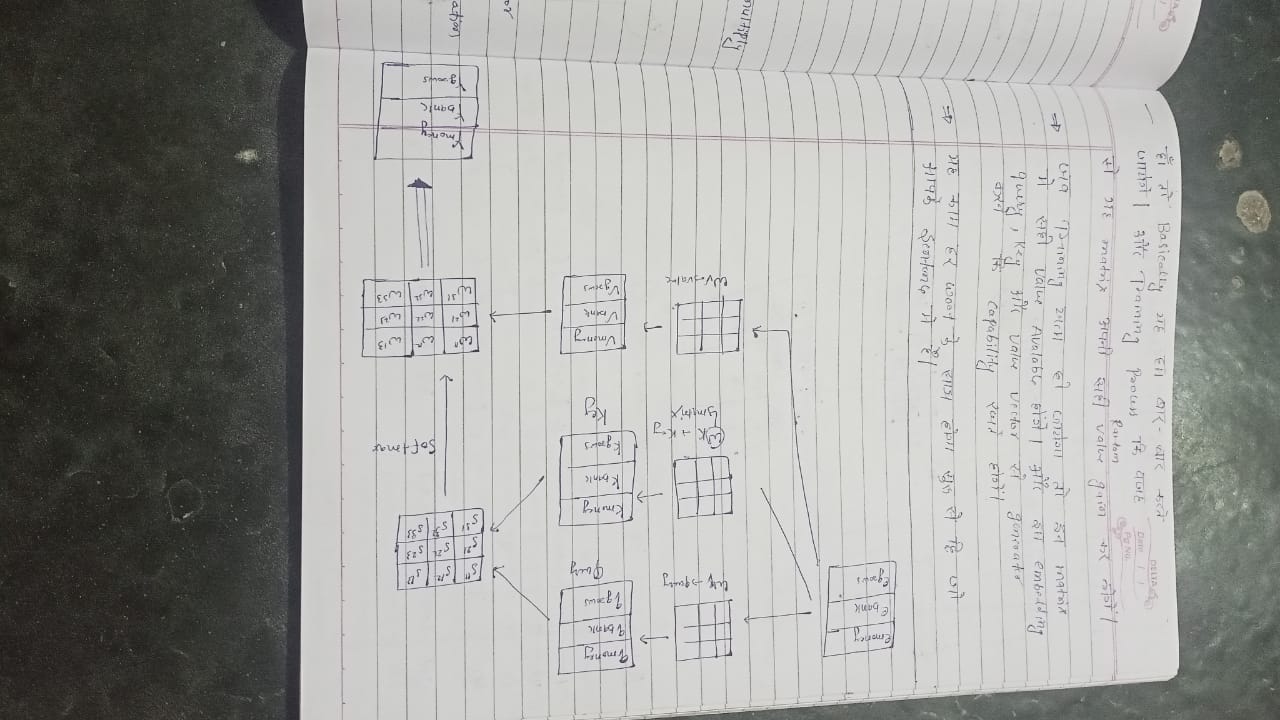 DELTA
Date / /
Pg No.
हाँ तो Basically यह हम बार-बार करते
जायेंगे। और Training Process कि वजह
Random
से यह matrix अपनी सही value gain कर लेंगे।
⇒ जब Training खत्म हो जायेगा तो इन matrix
में सही value होंगे। और इस embedding
query, key और value vector से generator
करने कि capability रखते होंगे।
⇒ यह काम हर word के साथ होगा सुरू से हि जो
आपके में है।
emoney
ebank
egrows
Wq → query
WK → Key
Wv → value
qmoney
qbank
qgrows
Kmoney
Kbank
Kgrows
Key
Vmoney
Vbank
Vgrows
S11 S12 S13
S21 S22 S23
S31 S32 S33
Softmax
W11 W12 W13
W21 W22 W23
W31 W32 W33
Ymoney
Ybank
Ygrows
multiply